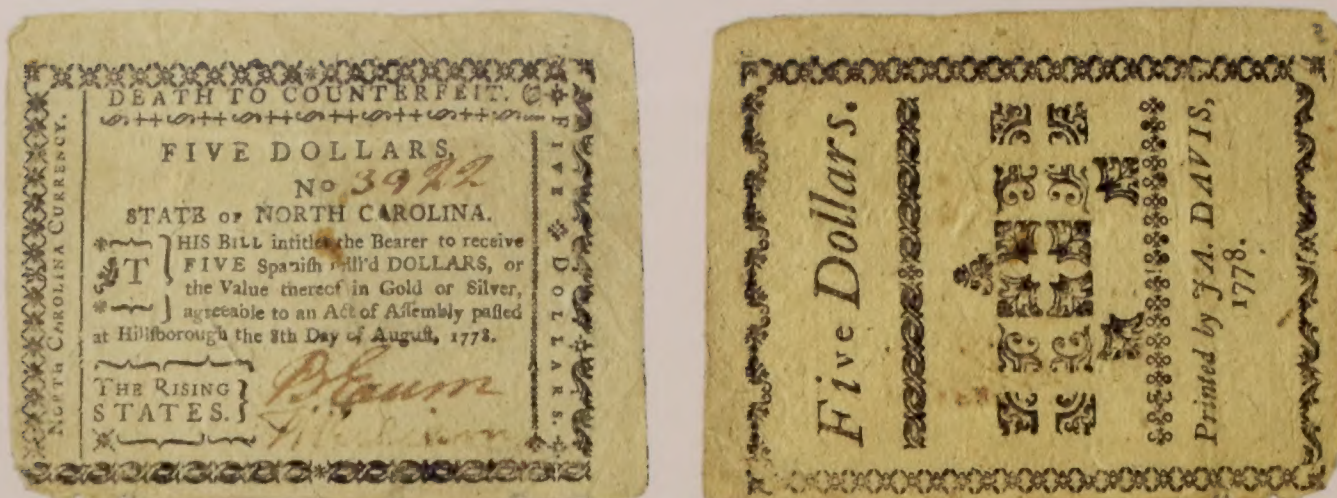 DEATH TO COUNTERFEIT.
NORTH CAROLINA CURRENCY.
FIVE DOLLARS.
FIVE DOLLARS,
No 3922
STATE OF NORTH CAROLINA.
THIS BILL intitles the Bearer to receive
FIVE Spaniſh mill'd DOLLARS, or
the Value thereof in Gold or Silver,
agreeable to an Act of Aſſembly paſſed
at Hillſborough the 8th Day of Auguſt, 1778.
THE RISING
STATES.
Five Dollars.
Printed by J A. DAVIS,
1778.